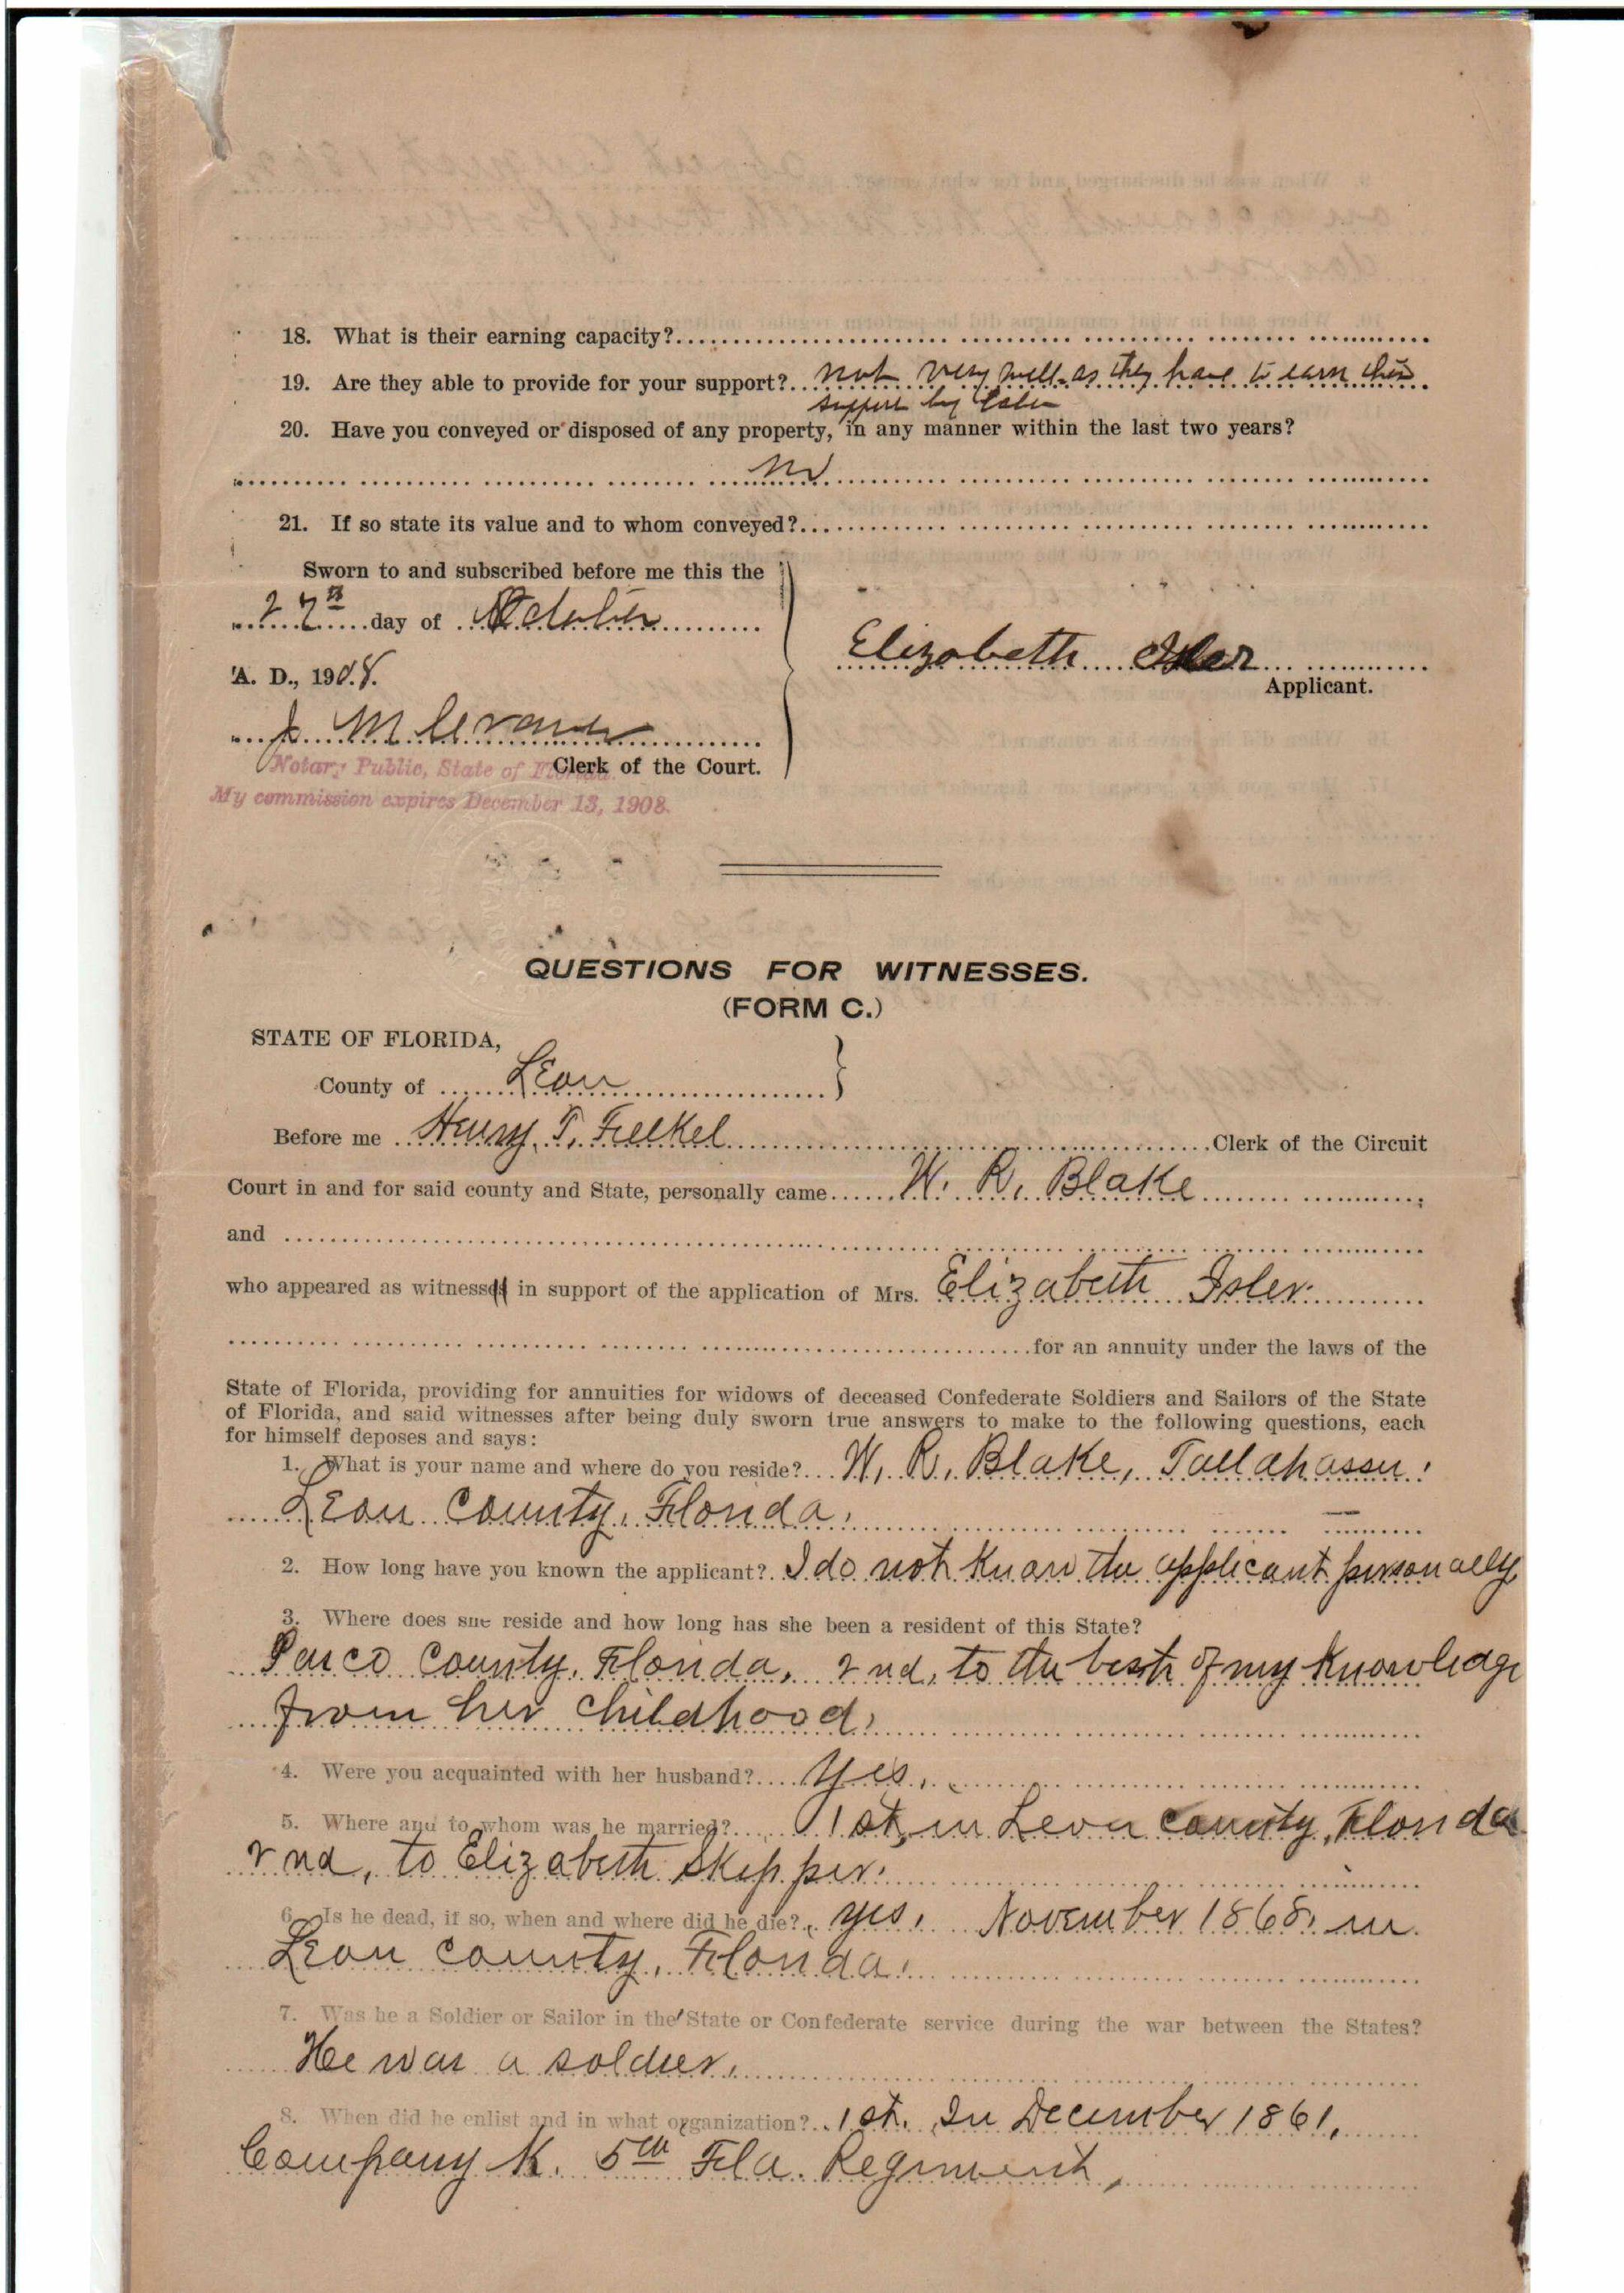 18. What is their earning capacity?
19. Are they able to provide for your support? not very well as they have to earn their
support by labor
20. Have you conveyed or disposed of any property, in any manner within the last two years?
no
21. If so state its value and to whom conveyed?
Sworn to and subscribed before me this the
27th day of October
A. D., 1908.
Elizabeth Isler
Applicant.
J. M.
Clerk of the Court.
Notary Public, State of Florida.
My commission expires December 13, 1908.
QUESTIONS FOR WITNESSES.
(FORM C.)
STATE OF FLORIDA,
County of Leon
Before me Henry T. Felkel Clerk of the Circuit
Court in and for said county and State, personally came W. R. Blake
and
who appeared as witnesses in support of the application of Mrs. Elizabeth Isler
for an annuity under the laws of the
State of Florida, providing for annuities for widows of deceased Confederate Soldiers and Sailors of the State
of Florida, and said witnesses after being duly sworn true answers to make to the following questions, each
for himself deposes and says:
1. What is your name and where do you reside? W. R. Blake, Tallahassee.
Leon County, Florida.
2. How long have you known the applicant? I do not know the applicant personally
3. Where does she reside and how long has she been a resident of this State?
Pasco County, Florida. 2nd, to the best of my knowledge
from her childhood.
4. Were you acquainted with her husband? Yes.
5. Where and to whom was he married? 1st, in Leon County, Florida
2nd, to Elizabeth Skipper.
6. Is he dead, if so, when and where did he die? yes. November 1868. in
Leon County, Florida.
7. Was he a Soldier or Sailor in the State or Confederate service during the war between the States?
He was a soldier.
8. When did he enlist and in what organization? 1st. In December 1861.
Company K. 5th Fla. Regiment,